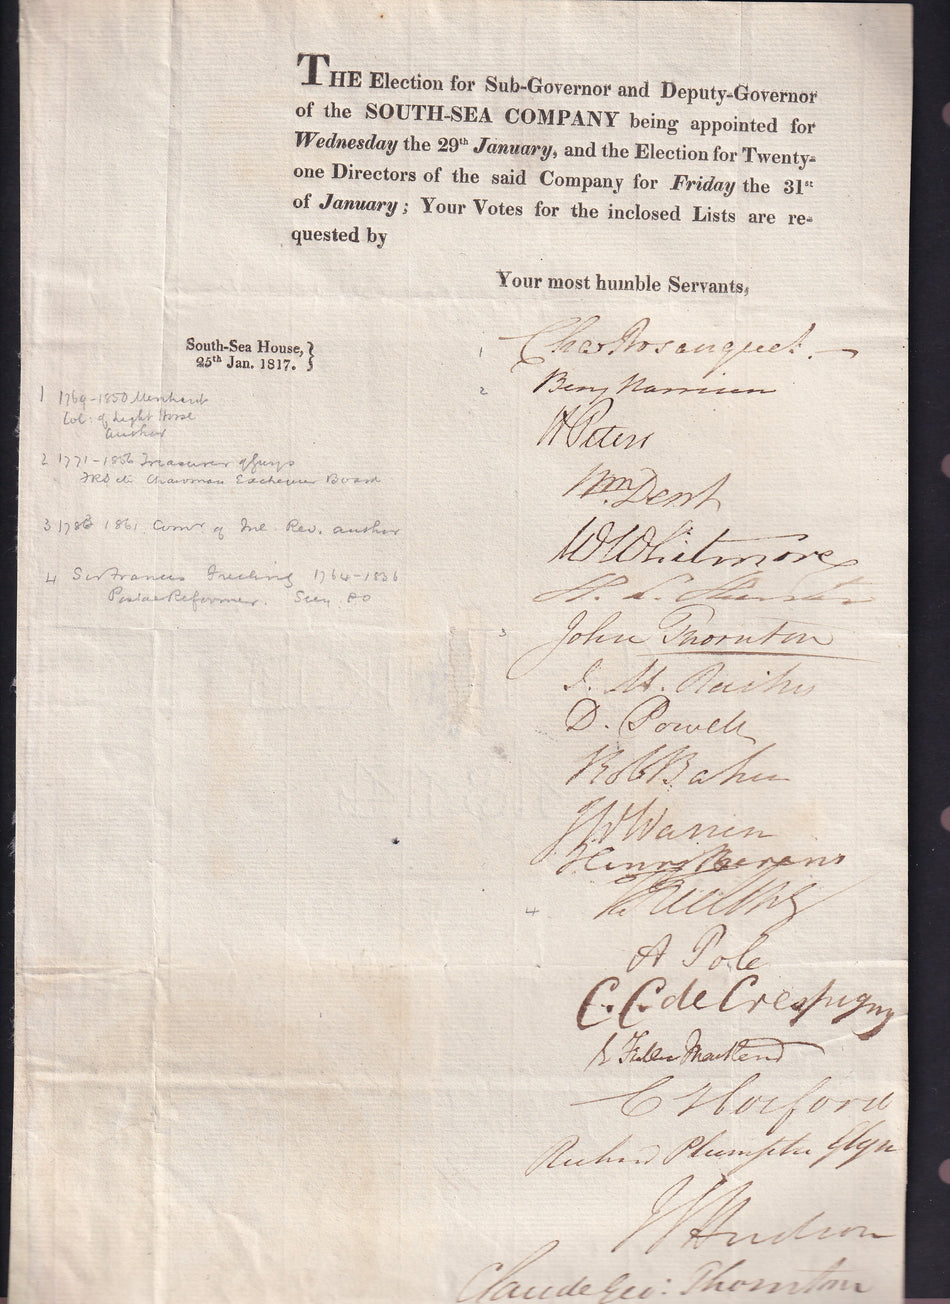 THE Election for Sub-Governor and Deputy-Governor
of the SOUTH-SEA COMPANY being appointed for
Wednesday the 29th January, and the Election for Twenty-
one Directors of the said Company for Friday the 31st
of January; Your Votes for the inclosed Lists are re-
quested by
Your most humble Servants,
South-Sea House,
25th Jan. 1817.
1 1769-1850 Merchant
Col. of Light Horse
author
2 1771-1856 Treasurer of Guys
FRS etc Chairman Exchequer Board
3 1783 1861 Comr of Inl. Rev. author
4 Sir Francis Freeling 1764-1836
Postal Reformer. Secy PO
1 Chas Bosanquet.
2 Benj Harrison
H Peters
Wm. Dent
W W Whitmore
3 John Thornton
J. M. Raikes
D. Powell
Rob Baker
J W Warren
Henry Berens
4 F Freeling
A Pole
C. C. de Crespigny
J Fuller Maitland
C Horford
Richard Plumptre Glyn
J Hudson
Claude Geo: Thornton